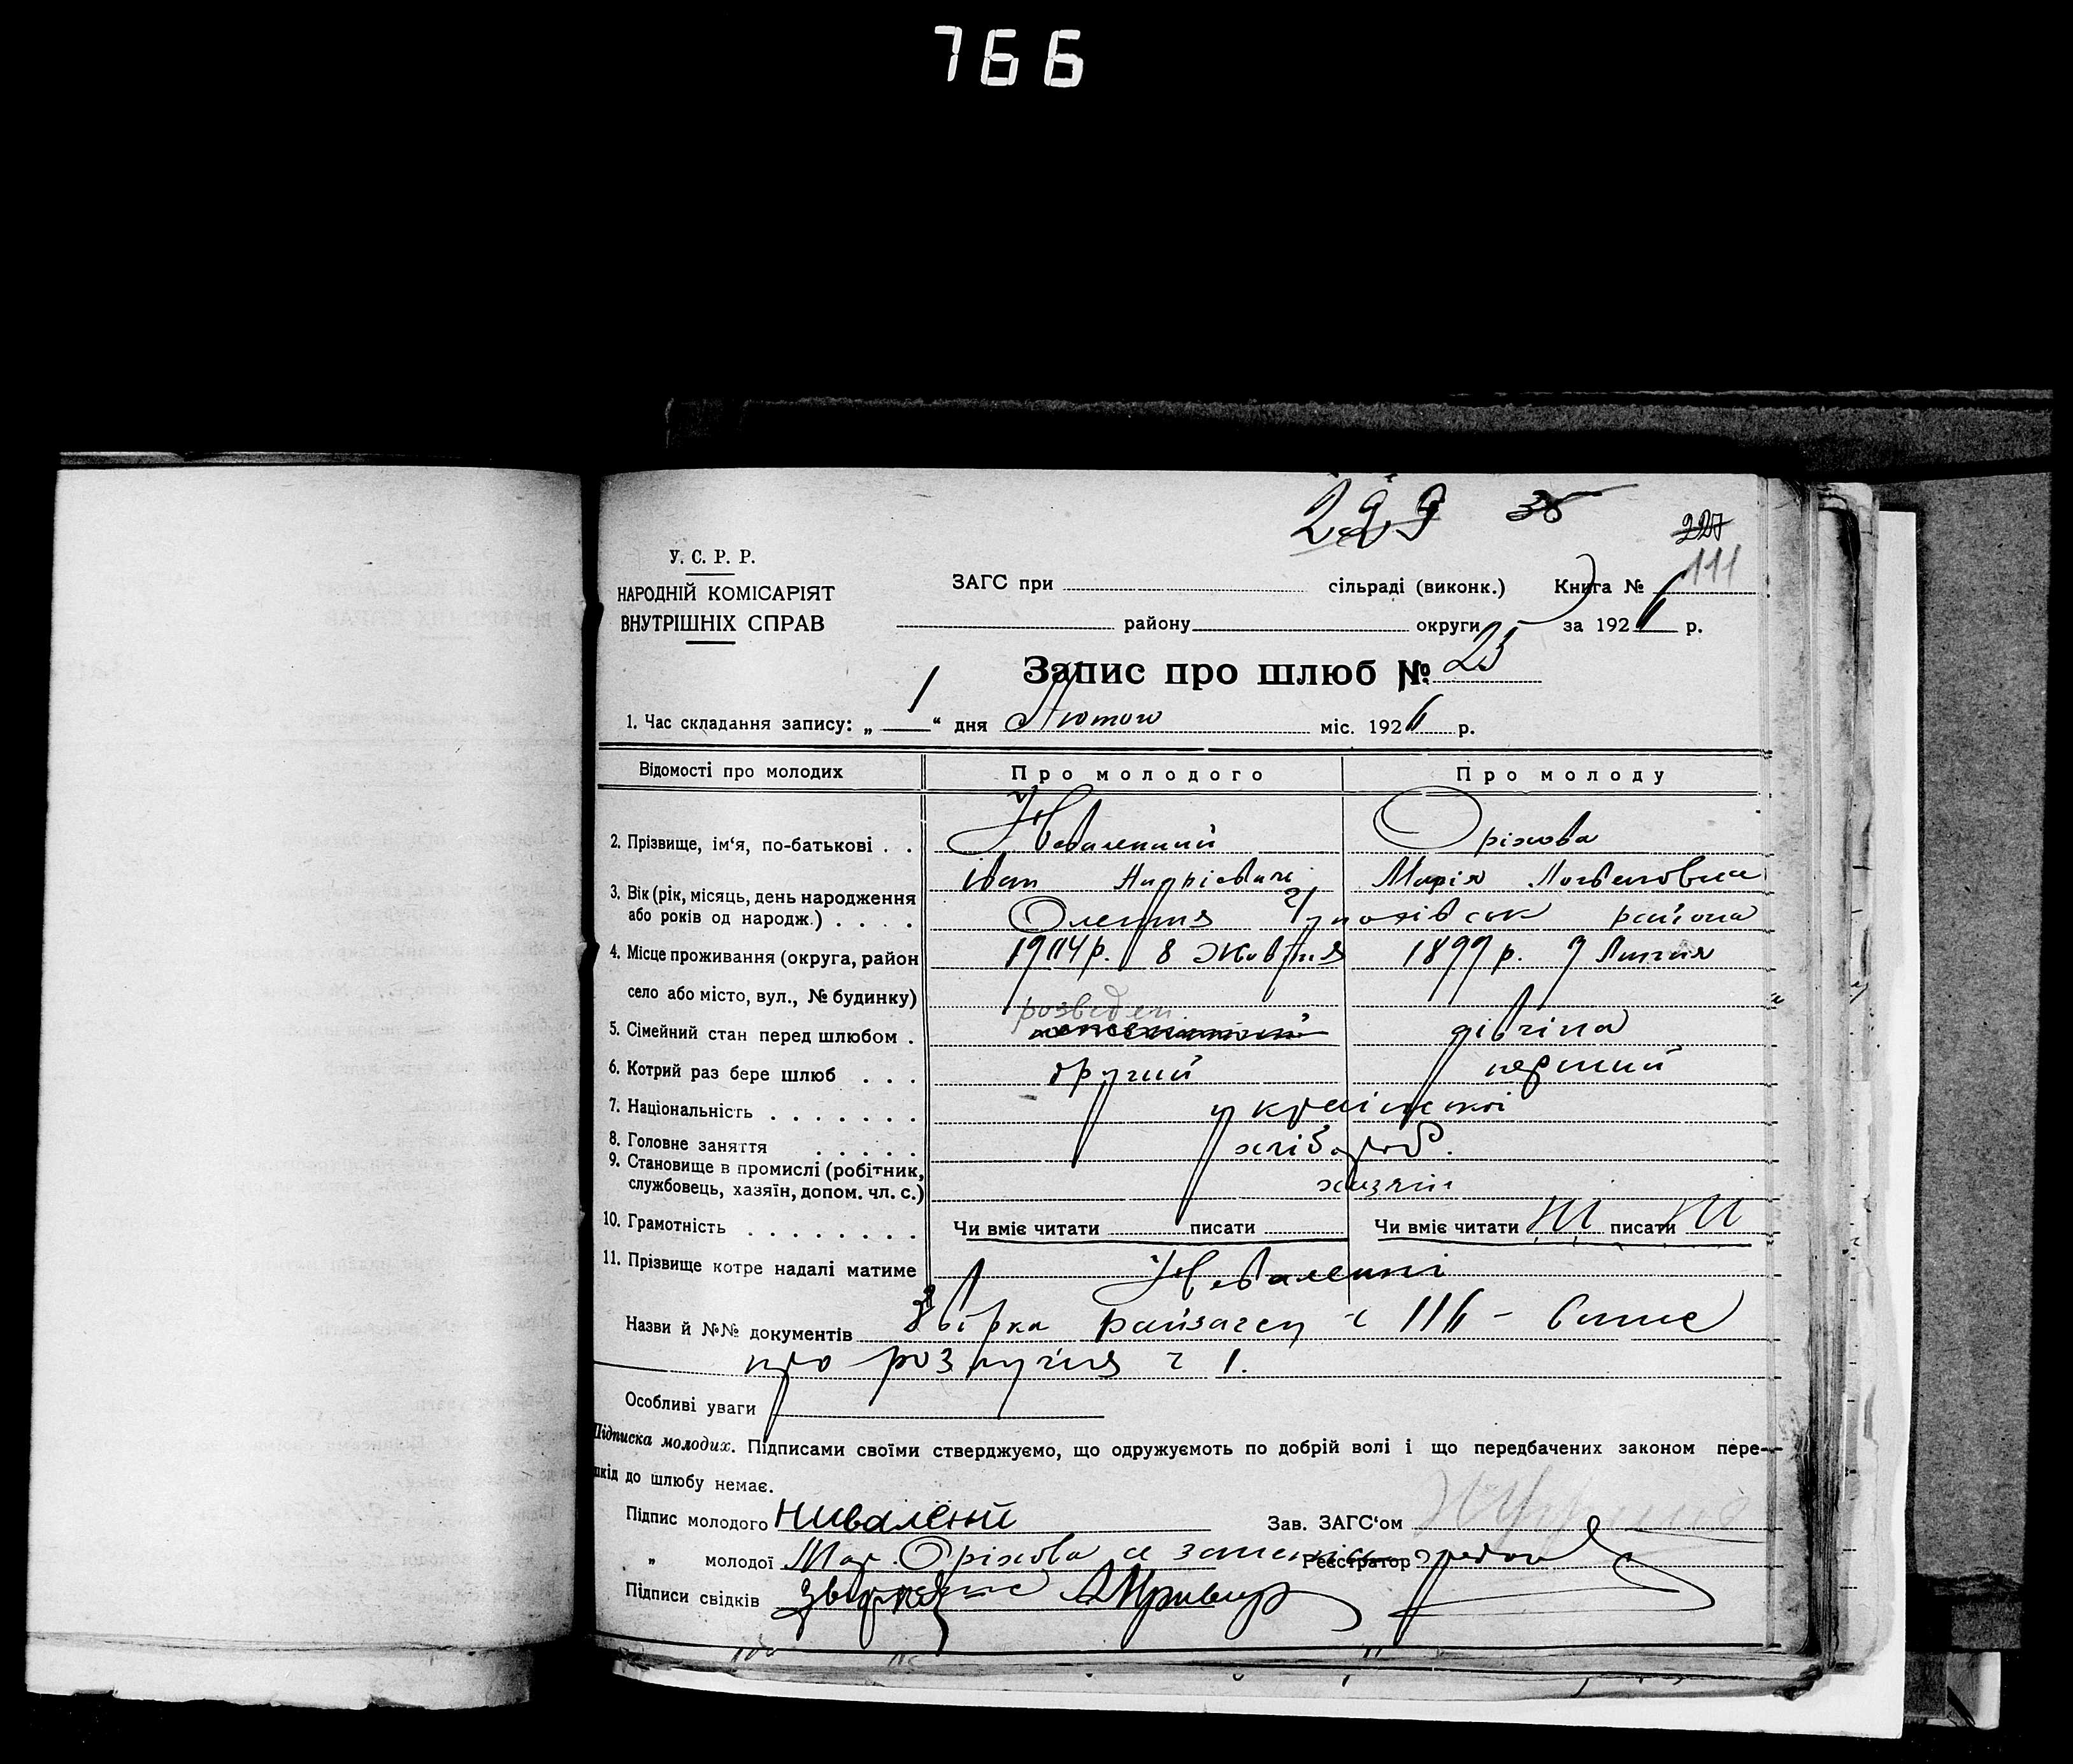 766
299 38
227
111
У. С. Р. Р.
НАРОДНІЙ КОМІСАРІЯТ
ВНУТРІШНІХ СПРАВ
ЗАГС при сільраді (виконк.) Книга №
району округи за 1926 р.
Запис про шлюб № 25
1. Час складання запису: „ 1 “ дня Лютого міс. 1926 р.
Відомості про молодих Про молодого Про молоду
2. Прізвище, ім‘я, по-батькові . . Неваленний Оріхова
Іван Андрієвич Марія
3. Вік (рік, місяць, день народження
або років од народж.) . . . . району
4. Місце проживання (округа, район 1904 р. 8 Жовтня 1899 р. 7 Липня
село або місто, вул., № будинку)
5. Сімейний стан перед шлюбом . розведен дівчина
6. Котрий раз бере шлюб . . . другий перший
7. Національність . . . . . . . української
8. Головне заняття . . . . . хлібороб.
9. Становище в промислі (робітник,
службовець, хазяїн, допом. чл. с.) хазяїн
10. Грамотність . . . . . . . . Чи вміє читати писати Чи вміє читати ні писати ні
11. Прізвище котре надалі матиме Неваленні
Назви й №№ документів райзагсу ч 116 -
про розлучння ч 1.
Особливі уваги
Підписка молодих. Підписами своїми стверджуємо, що одружуємоть по добрій волі і що передбачених законом пере-
шкід до шлюбу немає.
Підпис молодого Нивалений Зав. ЗАГС‘ом
„ молодої Мар. Оріхова а Реєстратор
Підписи свідків